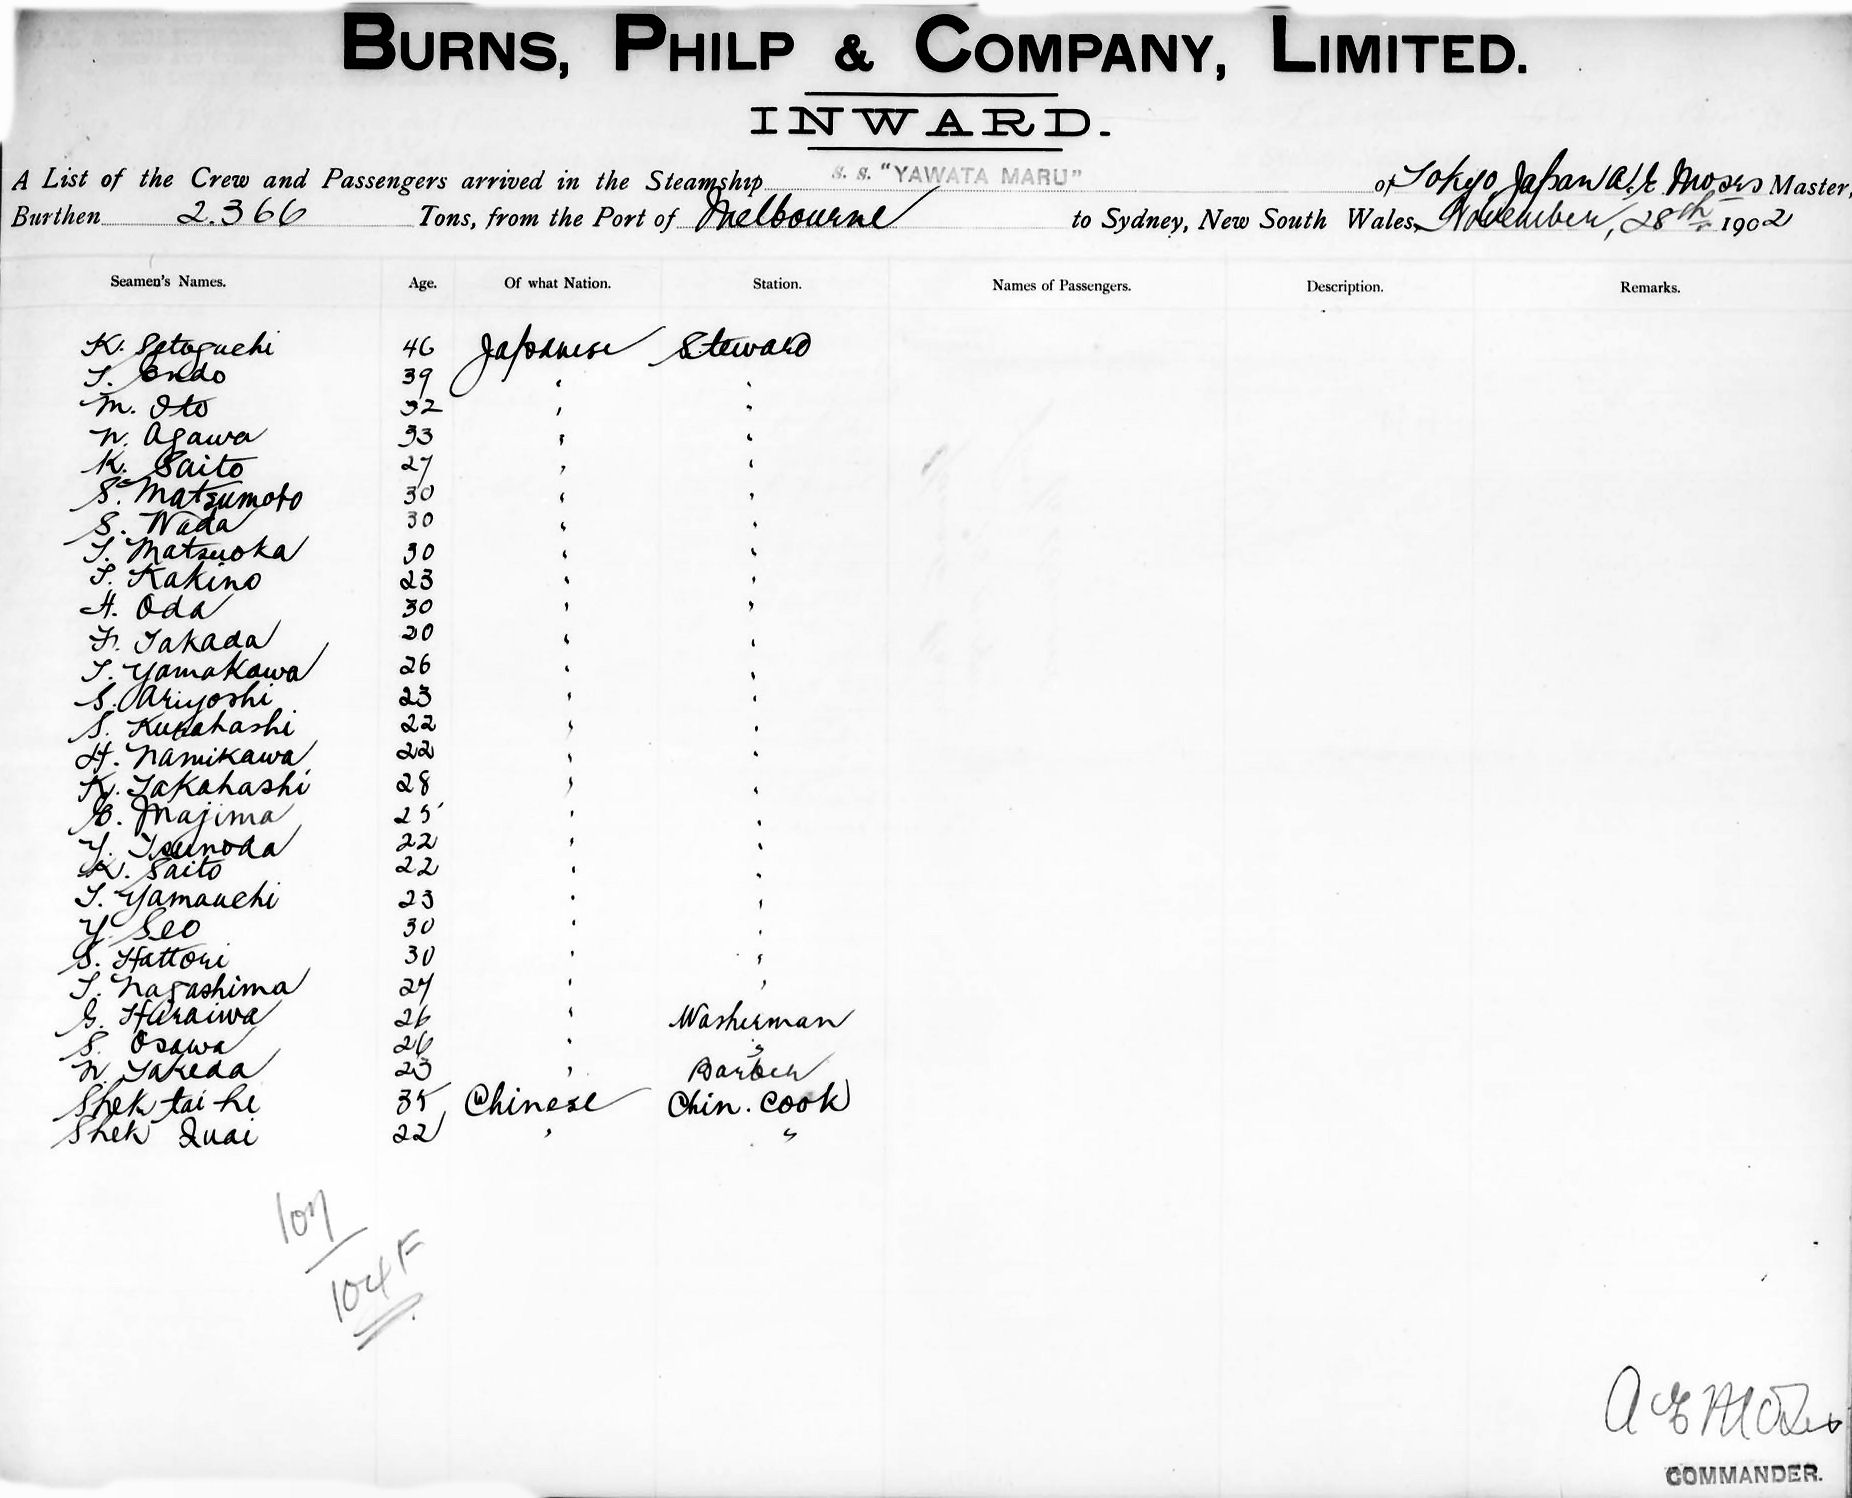 BURNS, PHILP & COMPANY, LIMITED.
INWARD.
A List of the Crew and Passengers arrived in the Steamship S. S. "YAWATA MARU" of Tokyo Japan A. E. Moses Master,
Burthen 2.366 Tons, from the Port of Melbourne to Sydney, New South Wales, November, 28th 1902
Seamen's Names. Age. Of what Nation. Station. Names of Passengers. Description. Remarks.
K. Satoguchi 46 Japanese Steward
T. Endo 39 " "
M. Ito 32 " "
N. Agawa 33 " "
K. Saito 27 " "
S. Matsumoto 30 " "
S. Wada 30 " "
T. Matsuoka 30 " "
T. Kakino 23 " "
H. Oda 30 " "
F. Takada 20 " "
T. Yamakawa 26 " "
S. Ariyoshi 23 " "
S. Kurahashi 22 " "
H. Namikawa 22 " "
K. Takahashi 28 " "
G. Majima 25 " "
Y. Tsunoda 22 " "
K. Saito 22 " "
T. Yamauchi 23 " "
Y. Seo 30 " "
S. Hattori 30 " "
T. Nagashima 27 " "
G. Huraiwa 26 " Washerman
S. Osawa 26 " "
N. Takeda 23 " Barber
Shek tai he 35 Chinese Chin. Cook
Shek Quai 22 " "
107
104 F
A E Moses
COMMANDER.